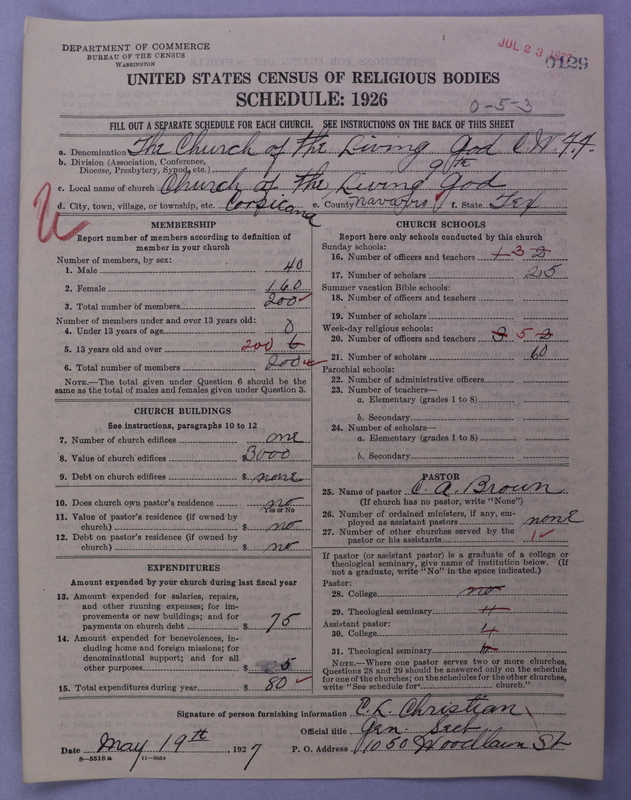 DEPARTMENT OF COMMERCE
BUREAU OF THE CENSUS
WASHINGTON
JUL 23 1927
0129
UNITED STATES CENSUS OF RELIGIOUS BODIES
SCHEDULE: 1926
0-5-3
FILL OUT A SEPARATE SCHEDULE FOR EACH CHURCH. SEE INSTRUCTIONS ON THE BACK OF THIS SHEET
a. Denomination The Church of the Living God C.W.F.F.
b. Division (Association, Conference,
Diocese, Presbytery, Synod, etc.) 9th
c. Local name of church Church of the Living God
d. City, town, village, or township, etc. Corsicana e. County Navarro f. State Tex
MEMBERSHIP
Report number of members according to definition of
member in your church
Number of members, by sex:
1. Male 40
2. Female 160
3. Total number of members 200
Number of members under and over 13 years old:
4. Under 13 years of age 0
5. 13 years old and over 200
6. Total number of members 200
NOTE.—The total given under Question 6 should be the
same as the total of males and females given under Question 3.
CHURCH BUILDINGS
See instructions, paragraphs 10 to 12
7. Number of church edifices one
8. Value of church edifices $3000
9. Debt on church edifices $ none
10. Does church own pastor's residence no
Yes or No
11. Value of pastor's residence (if owned by
church) $ no
12. Debt on pastor's residence (if owned by
church) $ no
EXPENDITURES
Amount expended by your church during last fiscal year
13. Amount expended for salaries, repairs,
and other running expenses; for im-
provements or new buildings; and for
payments on church debt $ 75
14. Amount expended for benevolences, in-
cluding home and foreign missions; for
denominational support; and for all
other purposes $ 5
15. Total expenditures during year $ 80
CHURCH SCHOOLS
Report here only schools conducted by this church
Sunday schools:
16. Number of officers and teachers 1 3 2
17. Number of scholars 25
Summer vacation Bible schools:
18. Number of officers and teachers
19. Number of scholars
Week-day religious schools:
20. Number of officers and teachers 3 5 2
21. Number of scholars 60
Parochial schools:
22. Number of administrative officers
23. Number of teachers—
a. Elementary (grades 1 to 8)
b. Secondary
24. Number of scholars—
a. Elementary (grades 1 to 8)
b. Secondary
PASTOR
25. Name of pastor C. A. Brown
(If church has no pastor, write "None")
26. Number of ordained ministers, if any, em-
ployed as assistant pastors none
27. Number of other churches served by the
pastor or his assistants 1
If pastor (or assistant pastor) is a graduate of a college or
theological seminary, give name of institution below. (If
not a graduate, write "No" in the space indicated.)
Pastor:
28. College no
29. Theological seminary "
Assistant pastor:
30. College
31. Theological seminary
NOTE.—Where one pastor serves two or more churches,
Questions 28 and 29 should be answered only on the schedule
for one of the churches; on the schedules for the other churches,
write "See schedule for church."
Signature of person furnishing information C. L. Christian
Official title Gen. Sect
Date May 19th, 1927 P. O. Address 1050 Woodlawn St
8—5518 a 11—9054